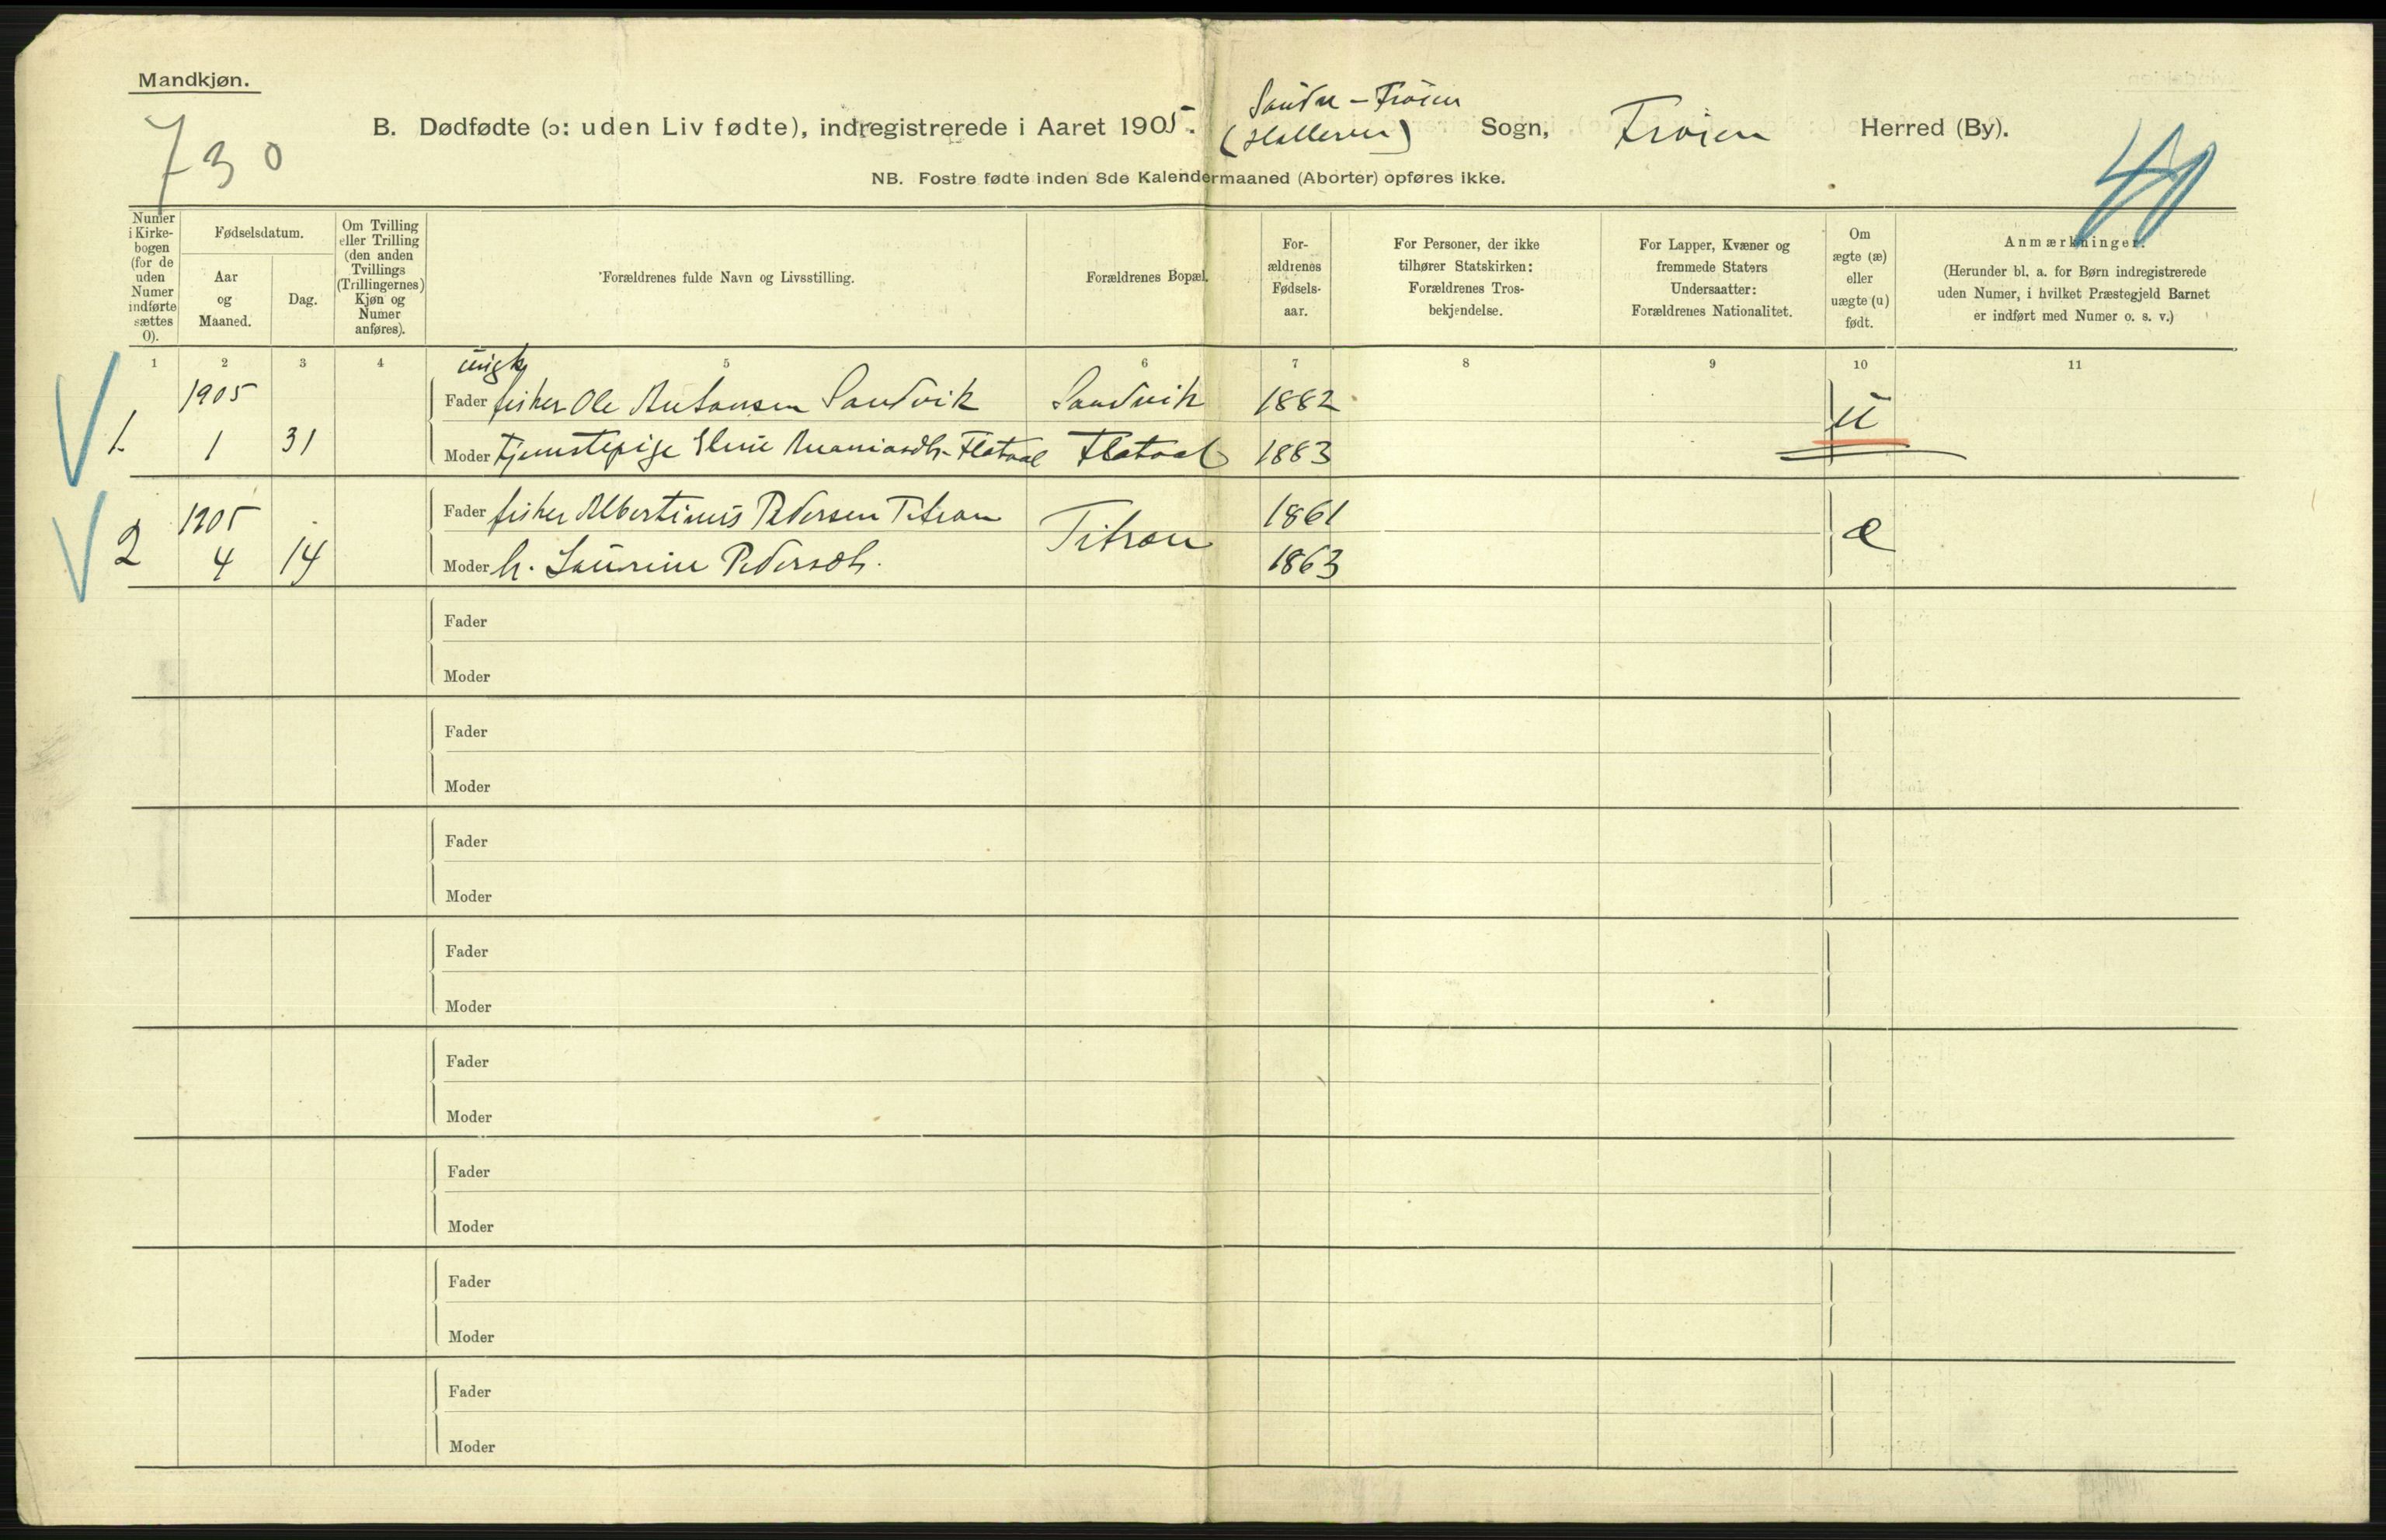 Mandkjøn.
730
B. Dødfødte (ɔ: uden Liv fødte), indregistrerede i Aaret 1905. Søndre-Frøien (Halleren) Sogn, Frøien Herred (By).
NB. Fostre fødte inden 8de Kalendermaaned (Aborter) opføres ikke.
Numer i Kirkebogen (for de uden Numer indførte sættes 0).
Fødselsdatum.
Aar og Maaned.
Dag.
Om Tvilling eller Trilling (den anden Tvillings (Trillingernes) Kjøn og Numer anføres).
Forældrenes fulde Navn og Livsstilling.
Forældrenes Bopæl.
Forældrenes Fødselsaar.
For Personer, der ikke tilhører Statskirken: Forældrenes Trosbekjendelse.
For Lapper, Kvæner og fremmede Staters Undersaatter: Forældrenes Nationalitet.
Om ægte (æ) eller uægte (u) født.
Anmærkninger.
(Herunder bl. a. for Børn indregistrerede uden Numer, i hvilket Præstegjeld Barnet er indført med Numer o. s. v.)
1 2 3 4 5 6 7 8 9 10 11
ungk
1905 Fader fisker Ole Antonsen Sandvik Sandvik 1882 u
1. 1 31 Moder Tjenestepige Eline Ananiasdtr. Flatval Flatval 1883
1905 Fader fisker Albertinus Pedersen Titran Titran 1861 æ
2 4 14 Moder h. Laurine Pedersdtr. 1863
Fader
Moder
Fader
Moder
Fader
Moder
Fader
Moder
Fader
Moder
Fader
Moder
Fader
Moder
Fader
Moder